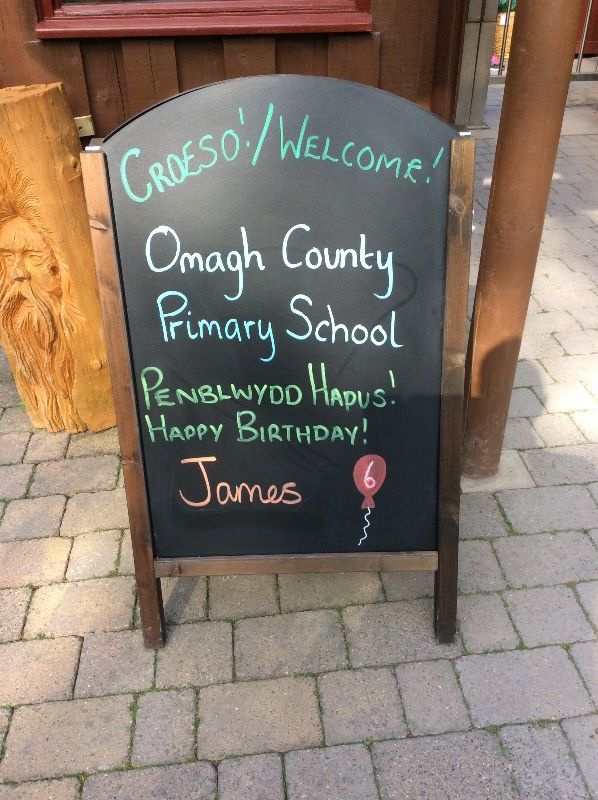 CROESO!/WELCOME!
Omagh County
Primary School
PENBLWYDD HAPUS!
HAPPY BIRTHDAY!
James
6